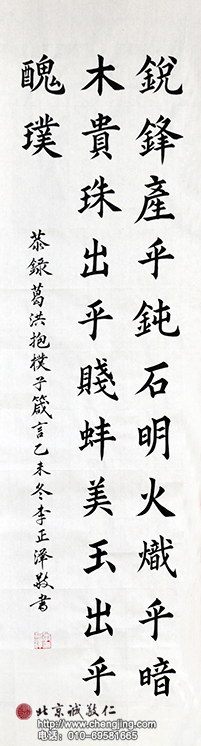 銳鋒產乎鈍石明火熾乎暗
木貴珠出乎賤蚌美玉出乎
醜璞
恭錄葛洪抱樸子箴言乙未冬李正泽敬書
北京诚敬仁
http://www.chengjing.com
电话：010-69581665